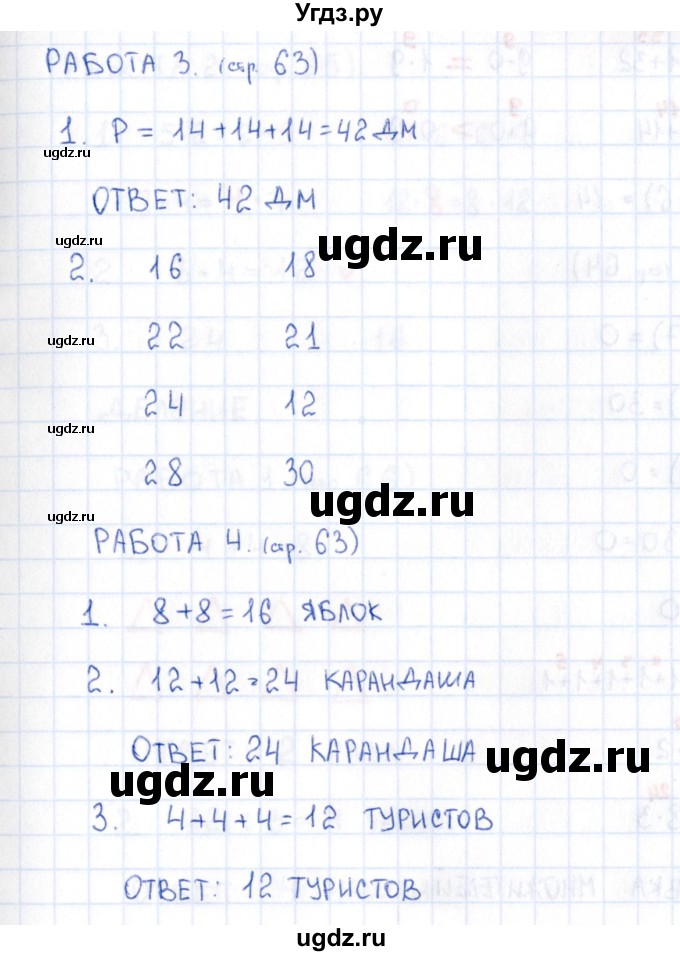 Угдз.ру
РАБОТА 3. (стр. 63)
1. P = 14+14+14=42 ДМ
ugdz.ru
ОТВЕТ: 42 ДМ
ugdz.ru
ugdz.ru
2. 16 18
22 21
ugdz.ru
24 12
ugdz.ru
28 30
ugdz.ru
ugdz.ru
РАБОТА 4. (стр. 63)
1. 8+8=16 ЯБЛОК
2. 12+12=24 КАРАНДАША
ОТВЕТ: 24 КАРАНДАША
ugdz.ru
ugdz.ru
3. 4+4+4=12 ТУРИСТОВ
ОТВЕТ: 12 ТУРИСТОВ
ugdz.ru